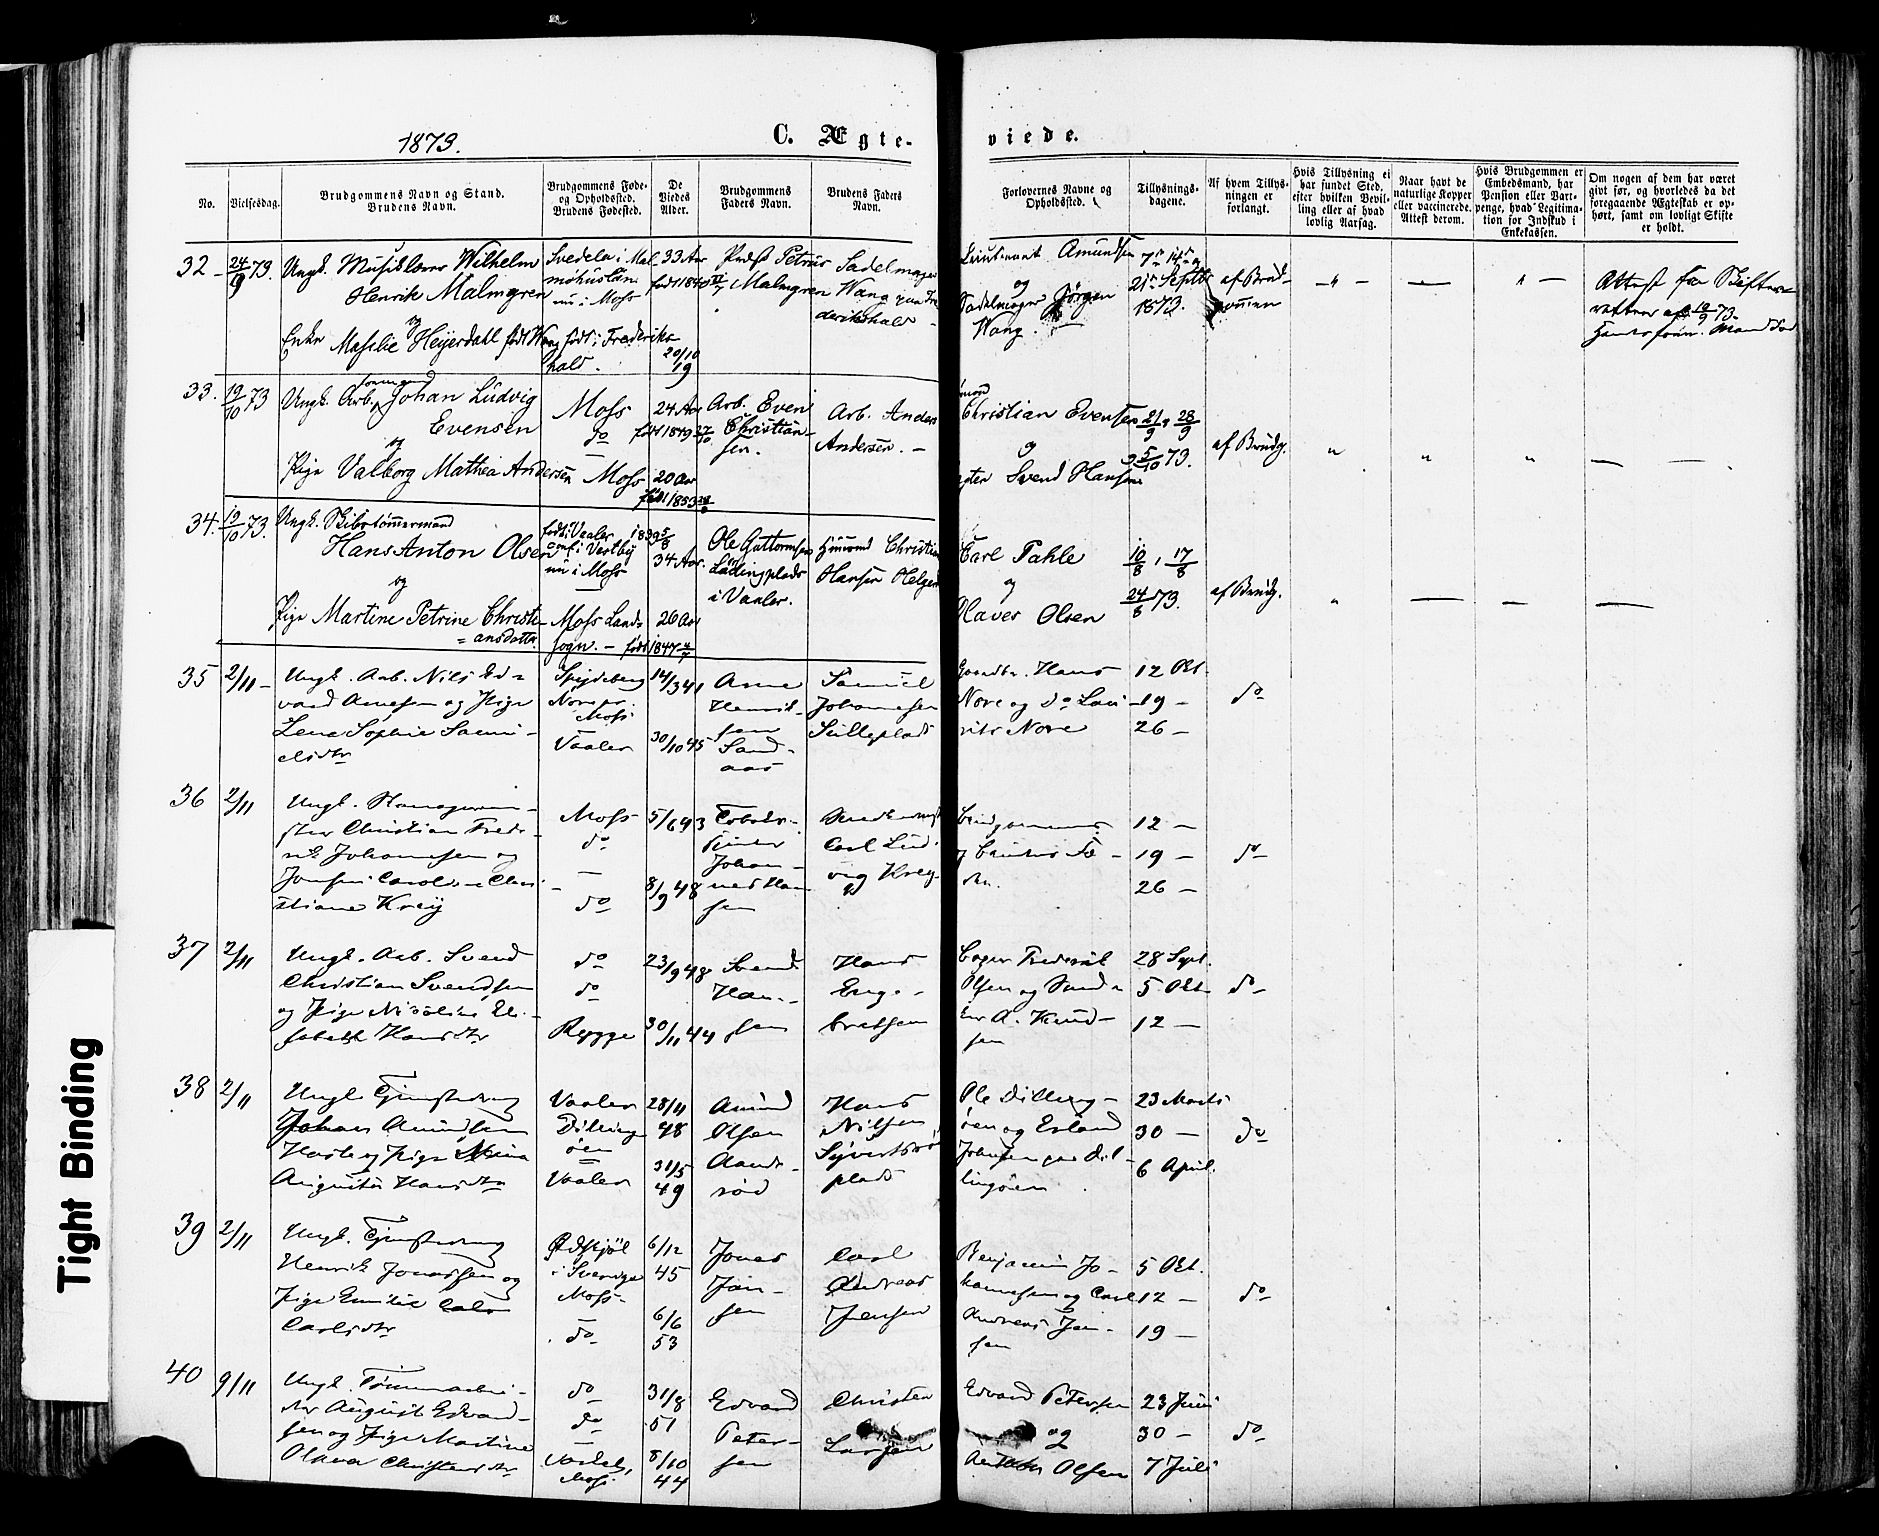 1873.
C. Ægte-
viede.
No.
Vielsesdag.
Brudgommens Navn og Stand.
Brudens Navn.
Brudgommens Føde-
og Opholdssted.
Brudens Fødested.
De
Viedes
Alder.
Brudgommens
Faders Navn.
Brudens Faders
Navn.
Forlovernes Navne og
Opholdssted.
Tillysnings-
dagene.
Af hvem Tillys-
ningen er
forlangt.
Hvis Tillysning ei
har fundet Sted,
efter hvilken Bevil-
ling eller af hvad
lovlig Aarsag.
Naar havt de
naturlige Kopper
eller vaccinerede.
Attest derom.
Hvis Brudgommen er
Embedsmand, har
Pension eller Vart-
penge, hvad Legitima-
tion for Indskud i
Enkekassen.
Om nogen af dem har været
givt før, og hvorledes da det
foregaaende Ægteskab er op-
hørt, samt om lovligt Skifte
er holdt.
32 - 24/9 73.
Ungk. Musiklærer Wilhelm
Henrik Malmgren
og
Enke Masalie Heyerdahl født Wang
Svedela i Mal-
møhuslän
nu i Moss
født i Frederiks-
hald.
33 Aar
født 1840
20/10
19
Petrus
Malmgren
Sadelmager
Wang paa Fre-
derikshald
Lieutenant Amundsen
og
Sadelmager Jørgen
Wang.
7de 14de og
21de Septbr
1873.
af Brud-
gommen
Attest fra Skifte-
retten af 10/9 73.
33. 19/10 73
Ungk. Arb.formand Johan Ludvig
Evensen
og
Pige Valborg Mathea Andersen
Moss
do
Moss
24 Aar
født 1849
20 Aar
født 1853
Arb. Even
Christian-
sen.
Arb. Anders
Andersen. -
Christian Evensen
og
Svend Hansen
21/9, 28/9
5/10 73.
af Brudg.
34. 19/10 73.
Ungk. Skibstømmermand
Hans Anton Olsen
og
Pige Martine Petrine Christi-
ansdatter
født i Vaaler
conf. i Vestby
nu i Moss
Moss Land-
sogn. -
1839 5/8
34 Aar.
26 Aar
født 1847
Ole Guttormsen
Ladingplads
i Vaaler.
Huusmd Christian
Hansen Helgerød
Carl Pahle
og
Olaves Olsen
10/8, 17/8
24/8 73.
af Brudg.
35 2/11 -
Ungk. Arb. Nils Ed-
vard Arnesen og Pige
Lena Sophie Samu-
elsdtr
Spydeberg
Nore pr.
Moss
Vaaler
14/3 41
30/10 45
Arne
Henrik-
sen
Sand-
aas
Samuel
Johannesen
Gaardbr. Hans
Nore og do Lau-
rits Nore
12 Okt.
19 -
26 -
do
36 2/11
Ungk.
Christian Frede-
rik Johannesen og
Jomfru Caroline Chri-
stiane Krey
Moss
do
do
5/6 43
8/9 48
Johan-
nes Han-
sen
Carl Lud-
vig Krey
Brudgommens
og Brudens Fæ-
dre.
12 -
19 -
26 -
do
37 2/11
Ungk. Arb. Svend
Christian Svendsen
og Pige Nicoline Eli-
sabeth Hansdtr
do
do
Rygge
23/9 48
30/11 44
Svend
Han-
sen
Hans
Enge-
bretsen
Bager Frederik
Olsen og
A. Knud-
sen
28 Sept.
5 Okt
12 -
do
38 2/11
Ungk. Tjenestedreng
Johan Amundsen
og Pige
Augusta Hansdtr
Vaaler
Dilling-
øen
Vaaler
28/4
48
31/5
49
Amund
Olsen
Aands-
rød
Hans
Nilsen
Syvertsrød
plads
Ole Dilling-
øen og Erland
Johnsen paa Dil-
lingøen
23 Marts
30 -
6 April.
do
39 2/11
Ungk. Tjenestedreng
Henrik Jonassen og
Pige Emilie
Carlsdtr
Ødskjöl
i Sverige
Moss
do
6/12
45
6/6
53
Jonas
Jan-
sen
Carl
Andreas
Jensen
Benjamin Jo-
hannesen og Carl
Andreas Jen-
sen
5 Okt.
12 -
19 -
do
40 9/11
Ungk. Tømmerarbei-
der August Edvard-
sen og Pige Martine
Olava Christensdtr
do
do
Moss
31/8
51
8/10
44
Edvard
Peter-
sen
Christen
Larsen
Edvard Petersen
og
Anton Olsen
23 Juni
30 -
7 Juli
do
Tight Binding